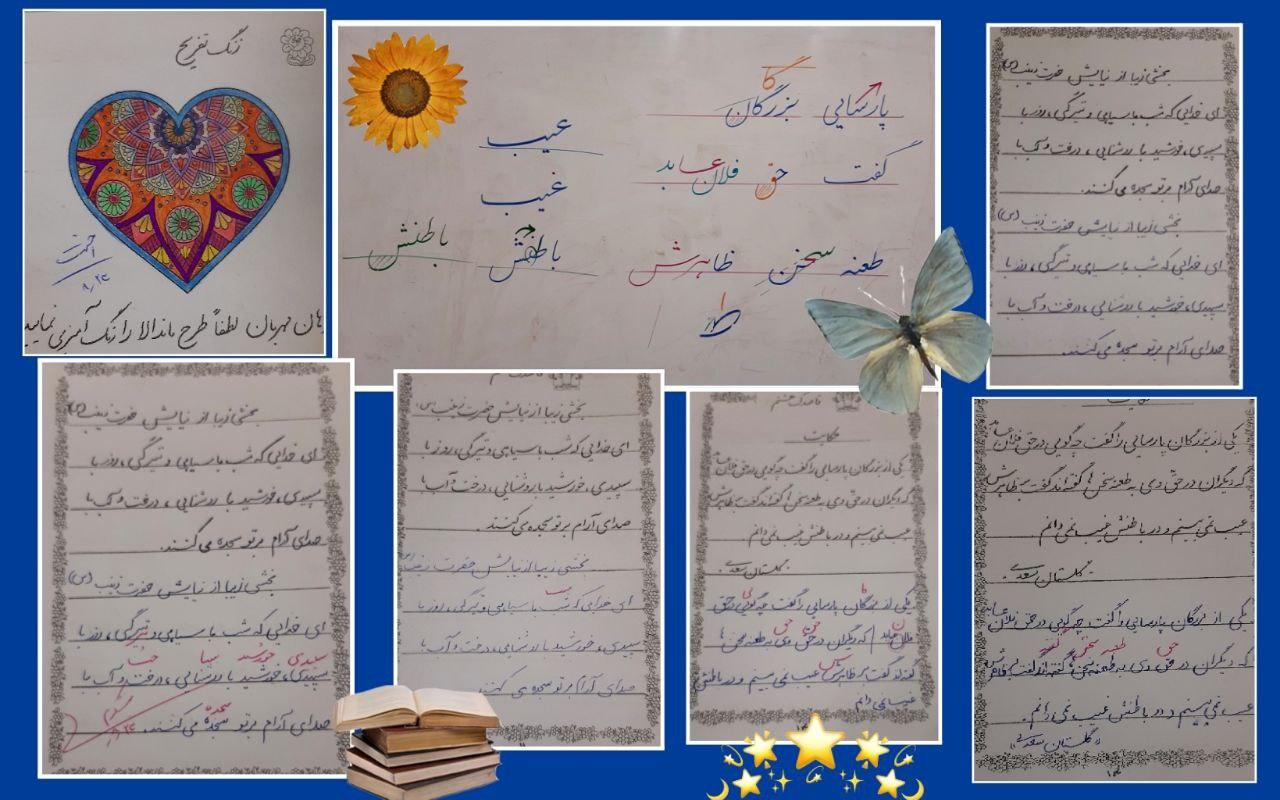 زنگ تفریح
احسنت
لطفاً طرح ماندالا را رنگ آمیزی نمایید
پارسایی بزرگان
گا
گفت حق فلان عابد
طعنه سخن ظاهرش
عیب
غیب
باطنش باطنش
بخشی زیبا از نیایش حضرت زینب (س)
ای خدایی که شب با سیاهی و تیرگی، روز با
سپیدی، خورشید با روشنایی، درخت و آب با
صدای آرام بر تو سجده می‌کنند.
بخشی زیبا از نیایش حضرت زینب (س)
ای خدایی که شب با سیاهی و تیرگی، روز با
سپیدی، خورشید با روشنایی، درخت و آب با
صدای آرام بر تو سجده می‌کنند.
بخشی زیبا از نیایش حضرت زینب (س)
ای خدایی که شب با سیاهی و تیرگی، روز با
سپیدی، خورشید با روشنایی، درخت و آب با
صدای آرام بر تو سجده می‌کنند.
بخشی زیبا از نیایش حضرت زینب (س)
ای خدایی که شب با سیاهی و تیرگی، روز با
سپیدی خورشید
سپیدی، خورشید با روشنایی، درخت و آب با
سجده
صدای آرام بر تو سجده می‌کنند.
بخشی زیبا از نیایش حضرت زینب (س)
ای خدایی که شب با سیاهی و تیرگی، روز با
سپیدی، خورشید با روشنایی، درخت و آب با
صدای آرام بر تو سجده می‌کنند.
بخشی زیبا از نیایش حضرت زینب (س)
ای خدایی که شب با سیاهی و تیرگی، روز با
سپیدی، خورشید با روشنایی، درخت و آب با
صدای آرام بر تو سجده می‌کنند.
حکایت
یکی از بزرگان پارسایی را گفت چه گویی در حق فلان عابد
که دیگران در حق وی به طعنه سخن ها گفته‌اند گفت بر ظاهرش
عیب نمی بینم و در باطنش غیب نمی دانم
گلستان سعدی
یکی از بزرگان پارسایی را گفت چه گویی در حق
فلان عابد که دیگران در حق وی به طعنه سخن ها
گفته‌اند گفت بر ظاهرش عیب نمی بینم و در باطنش
غیب نمی دانم
یکی از بزرگان پارسایی را گفت چه گویی در حق فلان عابد
که دیگران در حق وی به طعنه سخن ها گفته‌اند گفت بر ظاهرش
عیب نمی بینم و در باطنش غیب نمی دانم.
گلستان سعدی
یکی از بزرگان پارسایی را گفت چه گویی در حق فلان عابد
حق طعنه سخن
که دیگران در حق وی به طعنه سخن ها گفته‌اند گفت بر ظاهرش
عیب نمی بینم و در باطنش غیب نمی دانم.
«گلستان سعدی»